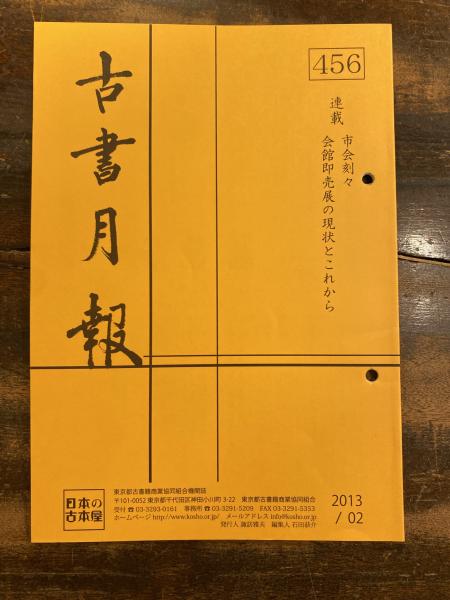 456
連載 市会刻々
会館即売展の現状とこれから
古書月報
日本の
古本屋
東京都古書籍商業協同組合機関誌
〒101-0052 東京都千代田区神田小川町 3-22 東京都古書籍商業協同組合
受付 ☎ 03-3293-0161 事務所 ☎ 03-3291-5209 FAX 03-3291-5353
ホームページ http://www.kosho.or.jp/ メールアドレス info@kosho.or.jp
発行人 諏訪雅夫 編集人 石田恭介
2013
/ 02